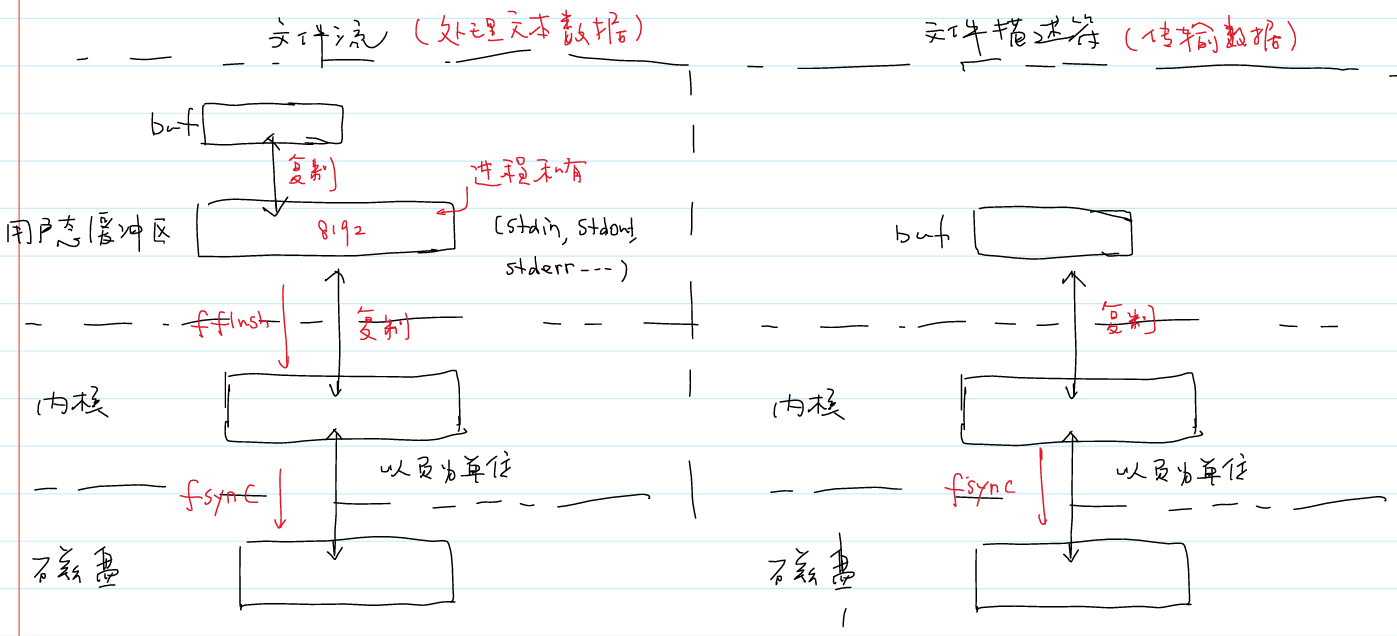 文件流 (处理文本数据)
buf
复制
进程私有
用户态缓冲区
8192
(stdin, stdout,
stderr---)
fflush
复制
内核
以页为单位
fsync
磁盘
文件描述符 (传输数据)
buf
复制
内核
以页为单位
fsync
磁盘